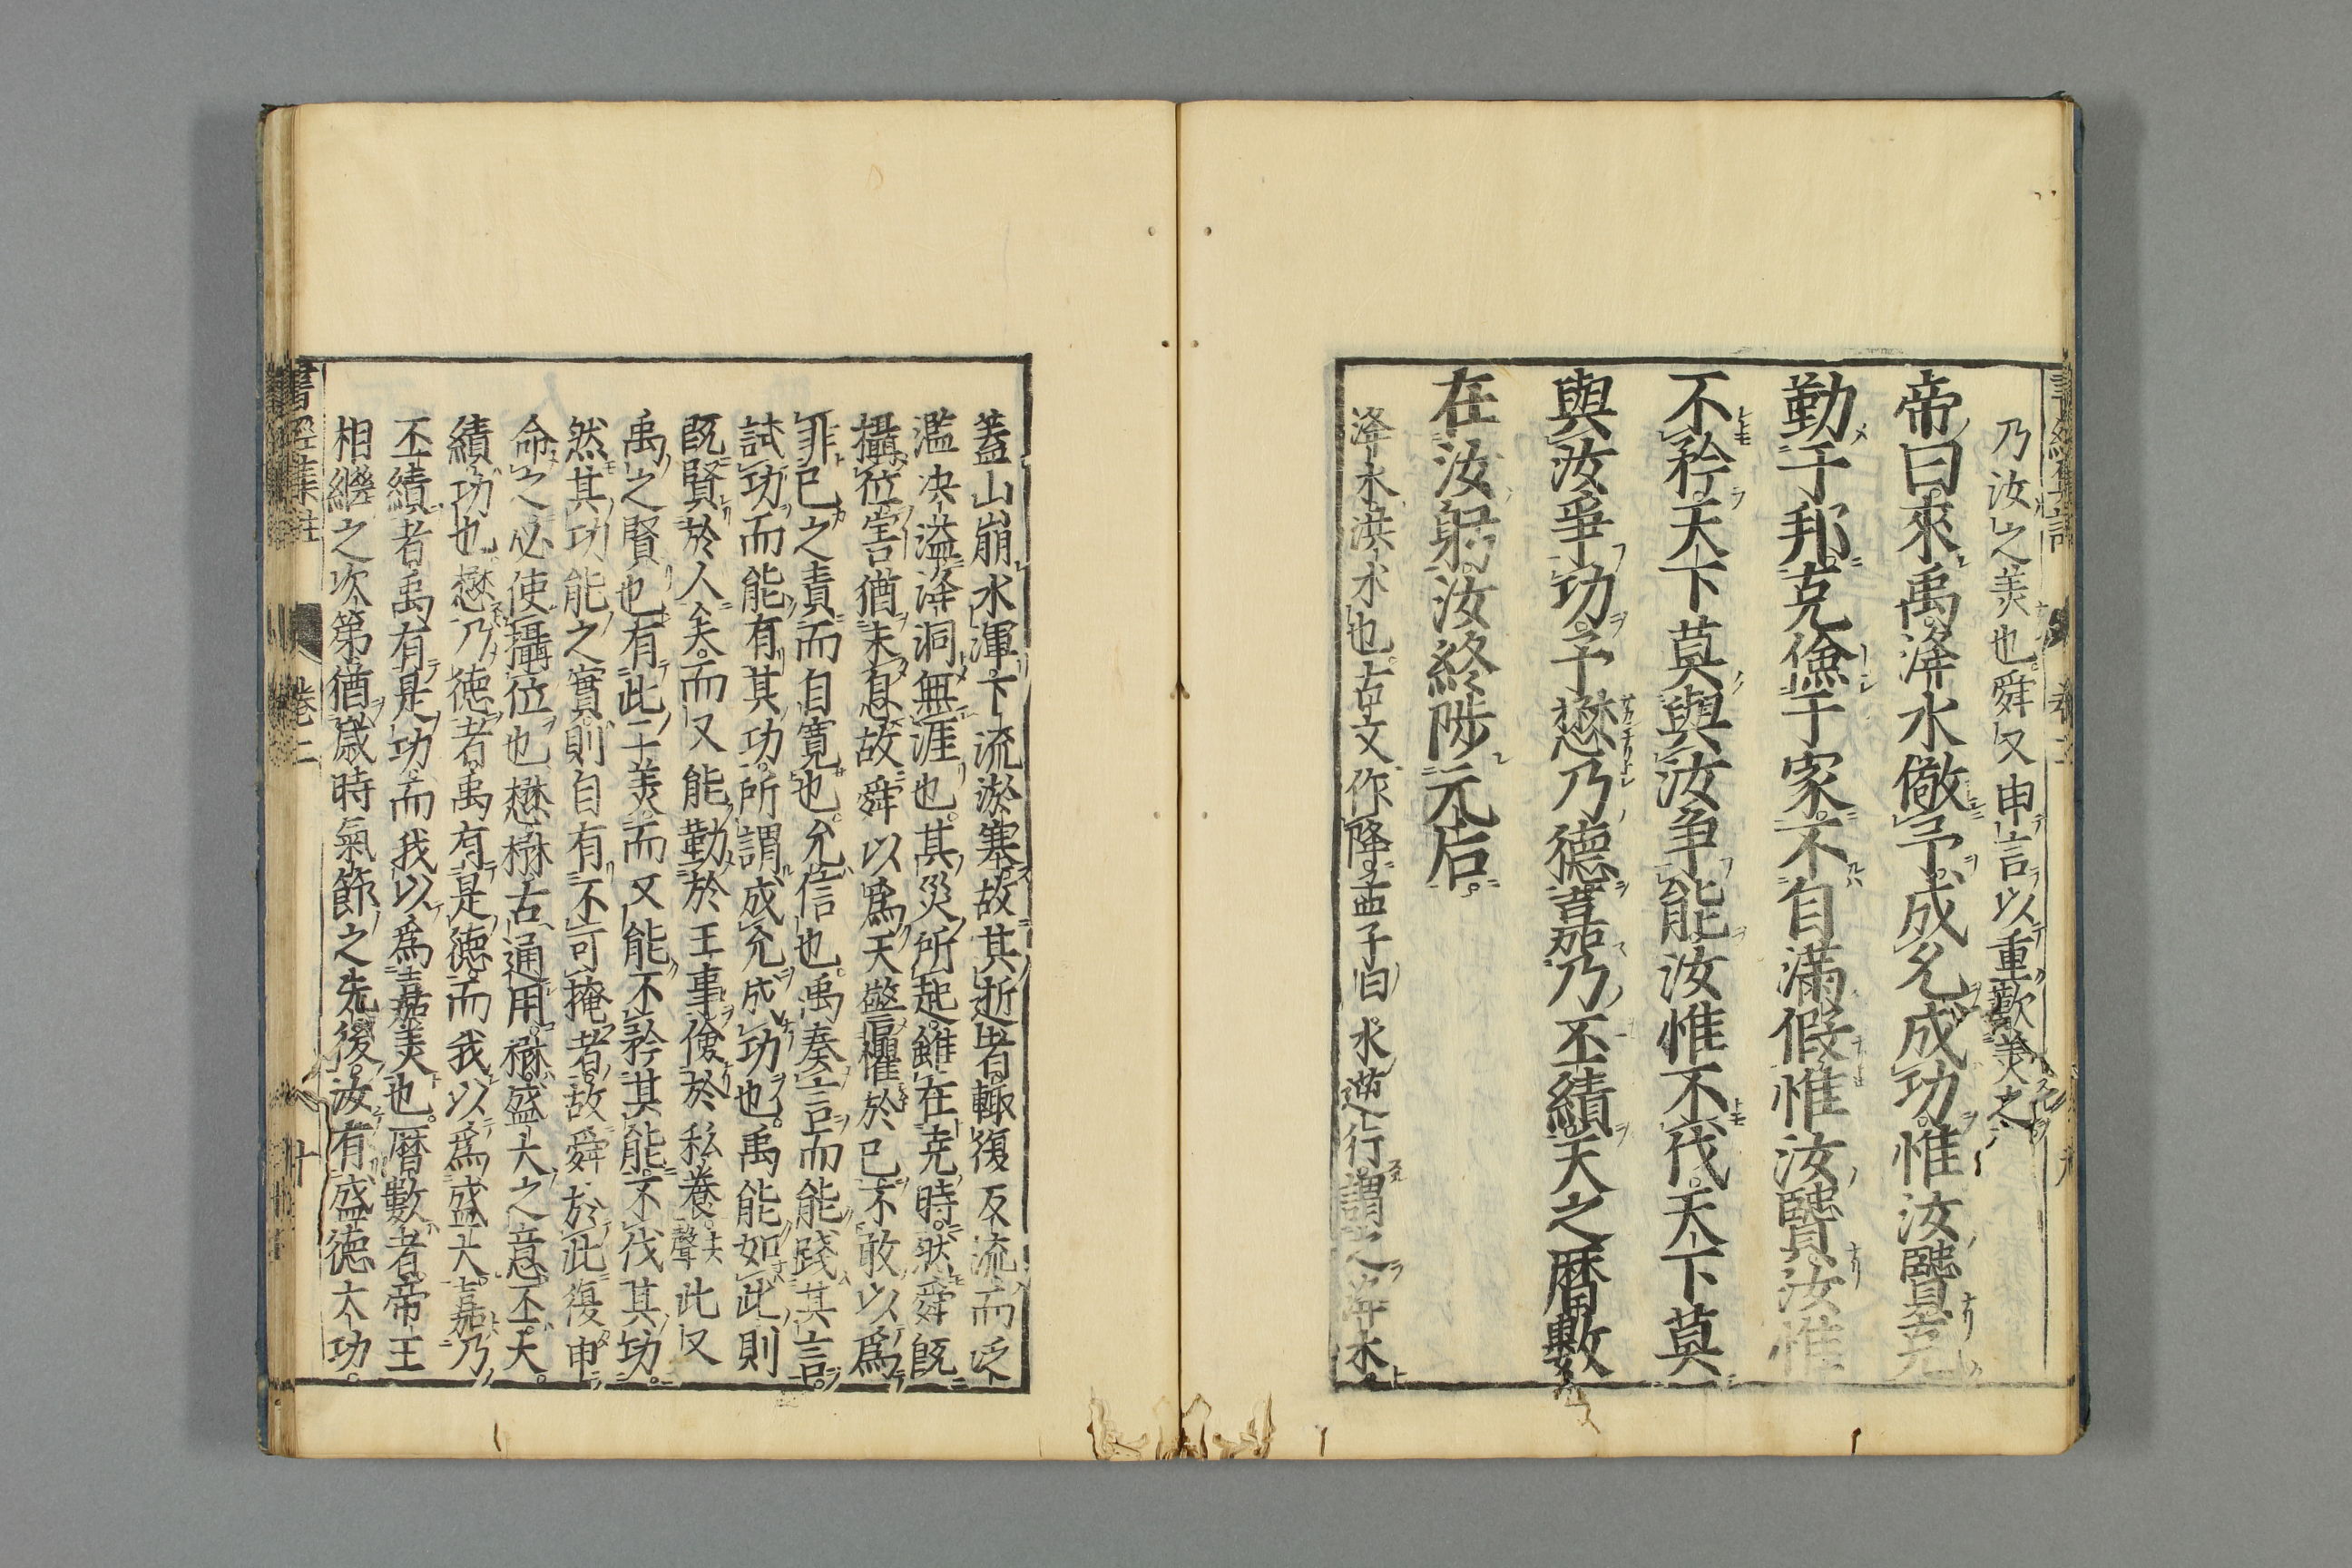 乃汝之美也。舜又申言以重歎美之
帝曰。來禹。洚水儆予。成允成功。惟汝賢。克
勤于邦。克儉于家。不自滿假。惟汝賢。汝惟
不矜。天下莫與汝爭能。汝惟不伐。天下莫
與汝爭功。予懋乃德。嘉乃丕績。天之曆數
在汝躬。汝終陟元后。
洚水洪水也。古文作降。孟子曰。水逆行謂之洚水。
蓋山崩水渾。下流淤塞。故其逝者。輙復反流。而泛
濫决溢。洚洞無涯也。其災所起。雖在堯時。然舜既
攝位。害猶未息。故舜以爲天警懼於己。不敢以爲
非己之責。而自寬也。允信也。禹奏言而能踐其言。
試功而能有其功。所謂成允成功也。禹能如此。則
既賢於人矣。而又能勤於王事。儉於私養。去聲此又
禹之賢也。有此二美。而又能不矜其能。不伐其功。
然其功能之實。則自有不可掩者。故舜於此復申
命之必使攝位也。懋楙古通用。楙盛大之意。丕大。
績功也。懋乃徳者。禹有是徳。而我以爲盛大。嘉乃
丕績者。禹有是功。而我以爲嘉美也。曆數者。帝王
相繼之次第。猶歳時氣節之先後。汝有盛徳大功。
書經集註 卷二 十